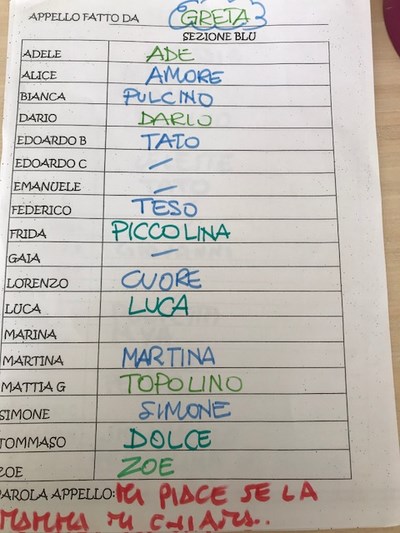 APPELLO FATTO DA GRETA
SEZIONE BLU
ADELE ADE
ALICE AMORE
BIANCA PULCINO
DARIO DARIO
EDOARDO B TATO
EDOARDO C /
EMANUELE /
FEDERICO TESO
FRIDA PICCOLINA
GAIA /
LORENZO CUORE
LUCA LUCA
MARINA
MARTINA MARTINA
MATTIA G TOPOLINO
SIMONE SIMONE
TOMMASO DOLCE
ZOE ZOE
PAROLA APPELLO: MI PIACE SE LA
MAMMA MI CHIAMA..